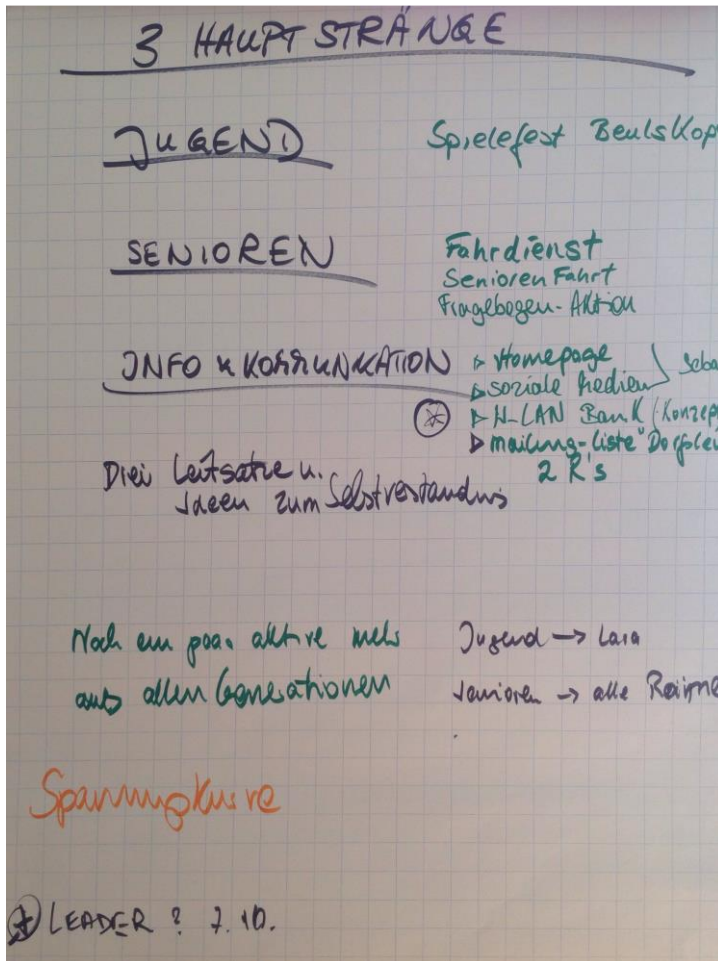 3 HAUPTSTRÄNGE
JUGEND Spielefest Beulskop
SENIOREN Fahrdienst
Senioren Fahrt
Fragebogen-Aktion
INFO u KOMMUNIKATION ▹ Homepage
▹ soziale Medien Seba
▹ W-LAN Bank (Konzep
▹ mailing-liste "Dorfle
2 R's
Drei Leitsätze u.
Ideen zum Selbstverständnis
Noch ein paar aktive mehr Jugend → Lara
aus allen Generationen Senioren → alle
Spannungskurve
LEADER ? 7.10.